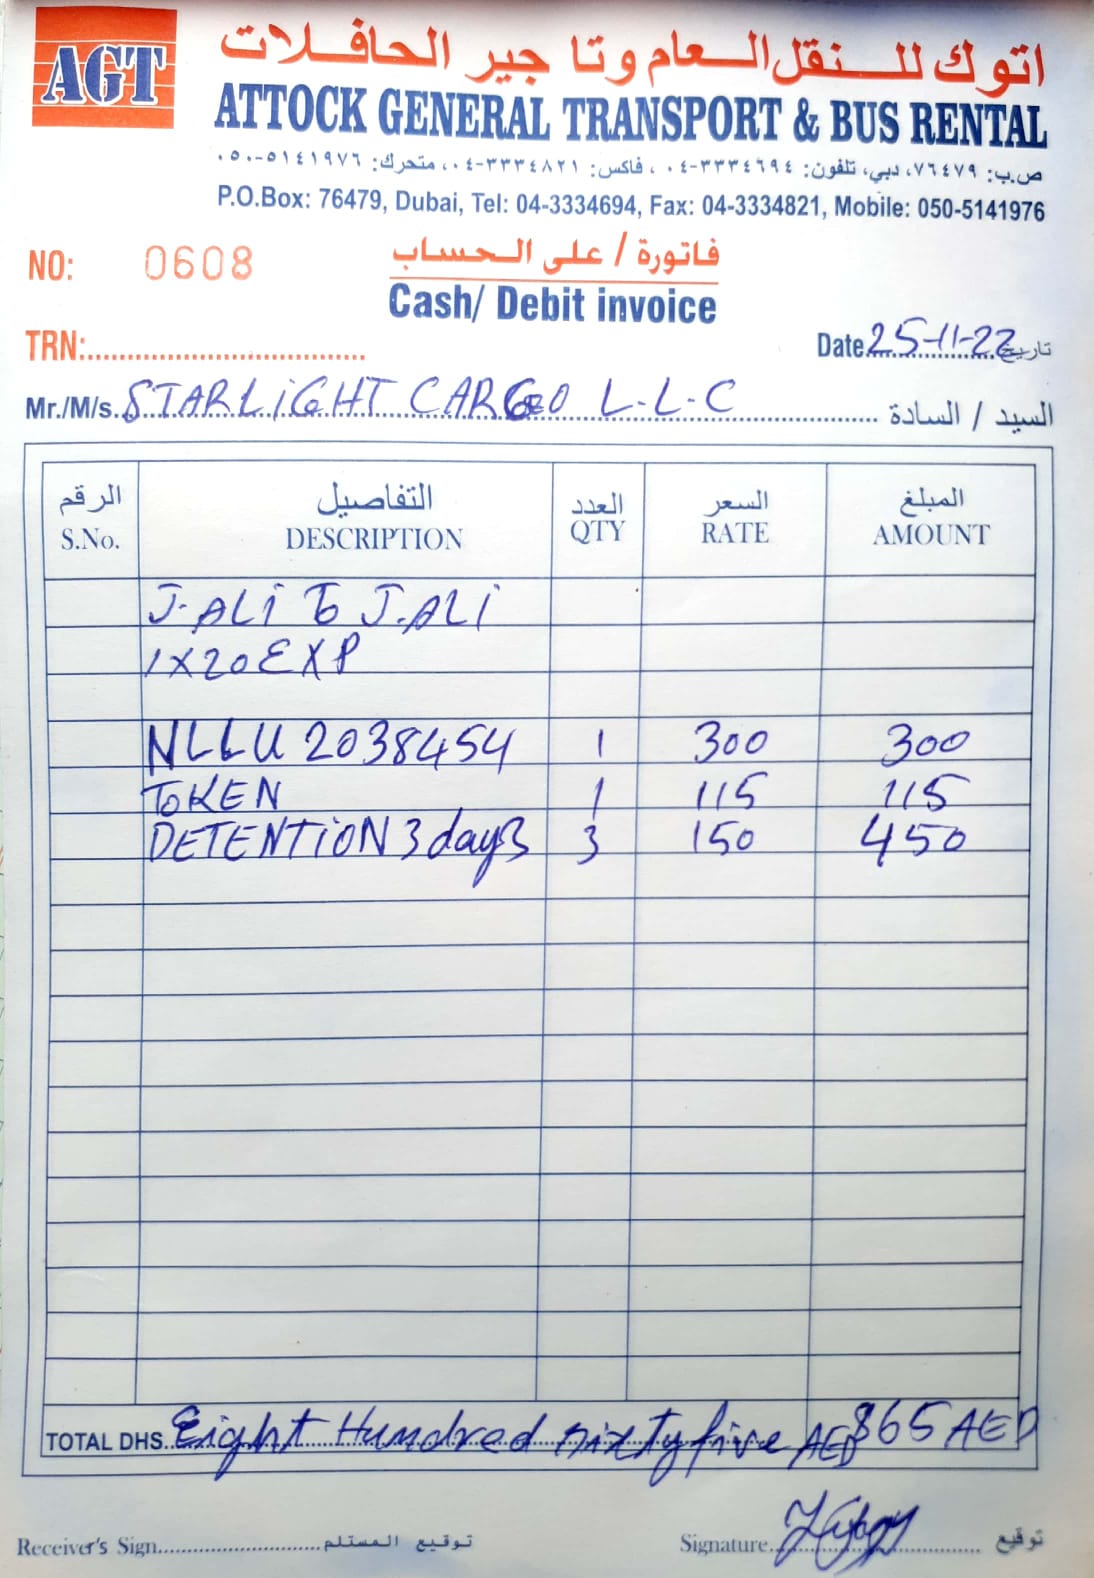 AGT
اتوك للنقل العام وتاجير الحافلات
ATTOCK GENERAL TRANSPORT & BUS RENTAL
ص.ب: ٧٦٤٧٩، دبي، تلفون: ٣٣٣٤٦٩٤-٠٤ ، فاكس: ٣٣٣٤٨٢١-٠٤، متحرك: ٥١٤١٩٧٦-٠٥٠
P.O.Box: 76479, Dubai, Tel: 04-3334694, Fax: 04-3334821, Mobile: 050-5141976
NO: 0608
فاتورة / على الحساب
Cash/ Debit invoice
TRN:
Date 25-11-22 تاريخ
Mr./M/s. STARLiGHT CARGO L-L-C السيد / السادة
الرقم التفاصيل العدد السعر المبلغ
S.No. DESCRIPTION QTY RATE AMOUNT
J-ALi To J.ALi
1X20EXP
NLLU 2038454 1 300 300
ToKEN 1 115 115
DETENTiON 3 days 3 150 450
TOTAL DHS. Eight Hundred sixty five AED 865 AED
Receiver's Sign. توقيع المستلم Signature. توقيع